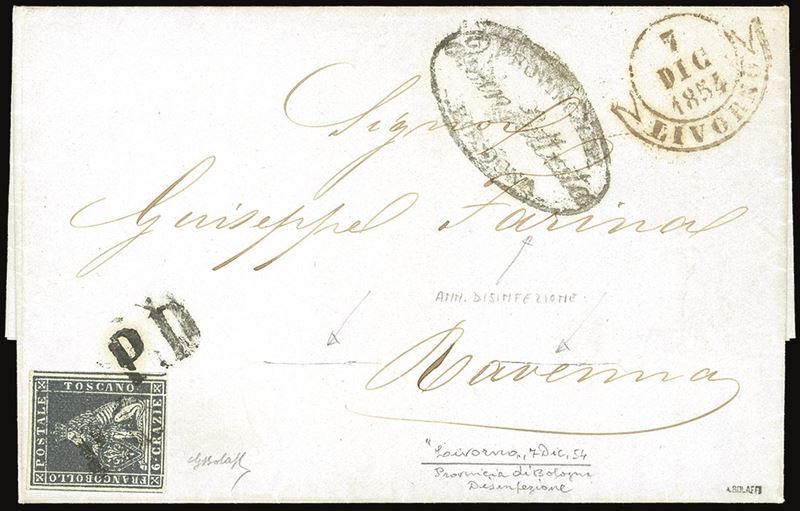 7
DIC
1854
LIVORNO
Signor
Giuseppe Farina
ANN. DISINFEZIONE
Ravenna
P.D
TOSCANO
POSTALE
6 CRAZIE
FRANCOBOLLO
GBolaffi
"Livorno, 7 Dic, 54
Provincia di Bologna
Desinfezione
A.BOLAFFI